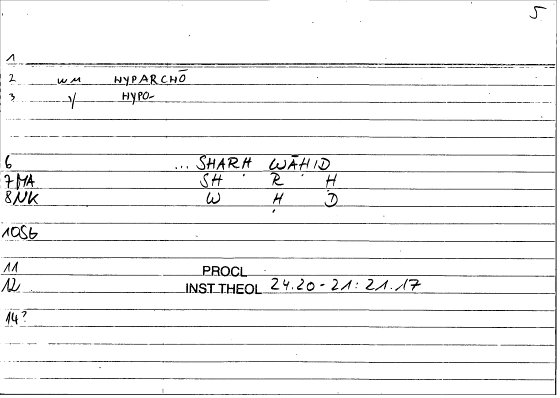 5
1
2 wm HYPARCHŌ
3 y HYPO-
6 ... SHARḤ WĀḤID
7 MA SH R Ḥ
8 NK W Ḥ D
10 S6
11 PROCL
12 INST.THEOL 24.20 - 21: 21.17
14?